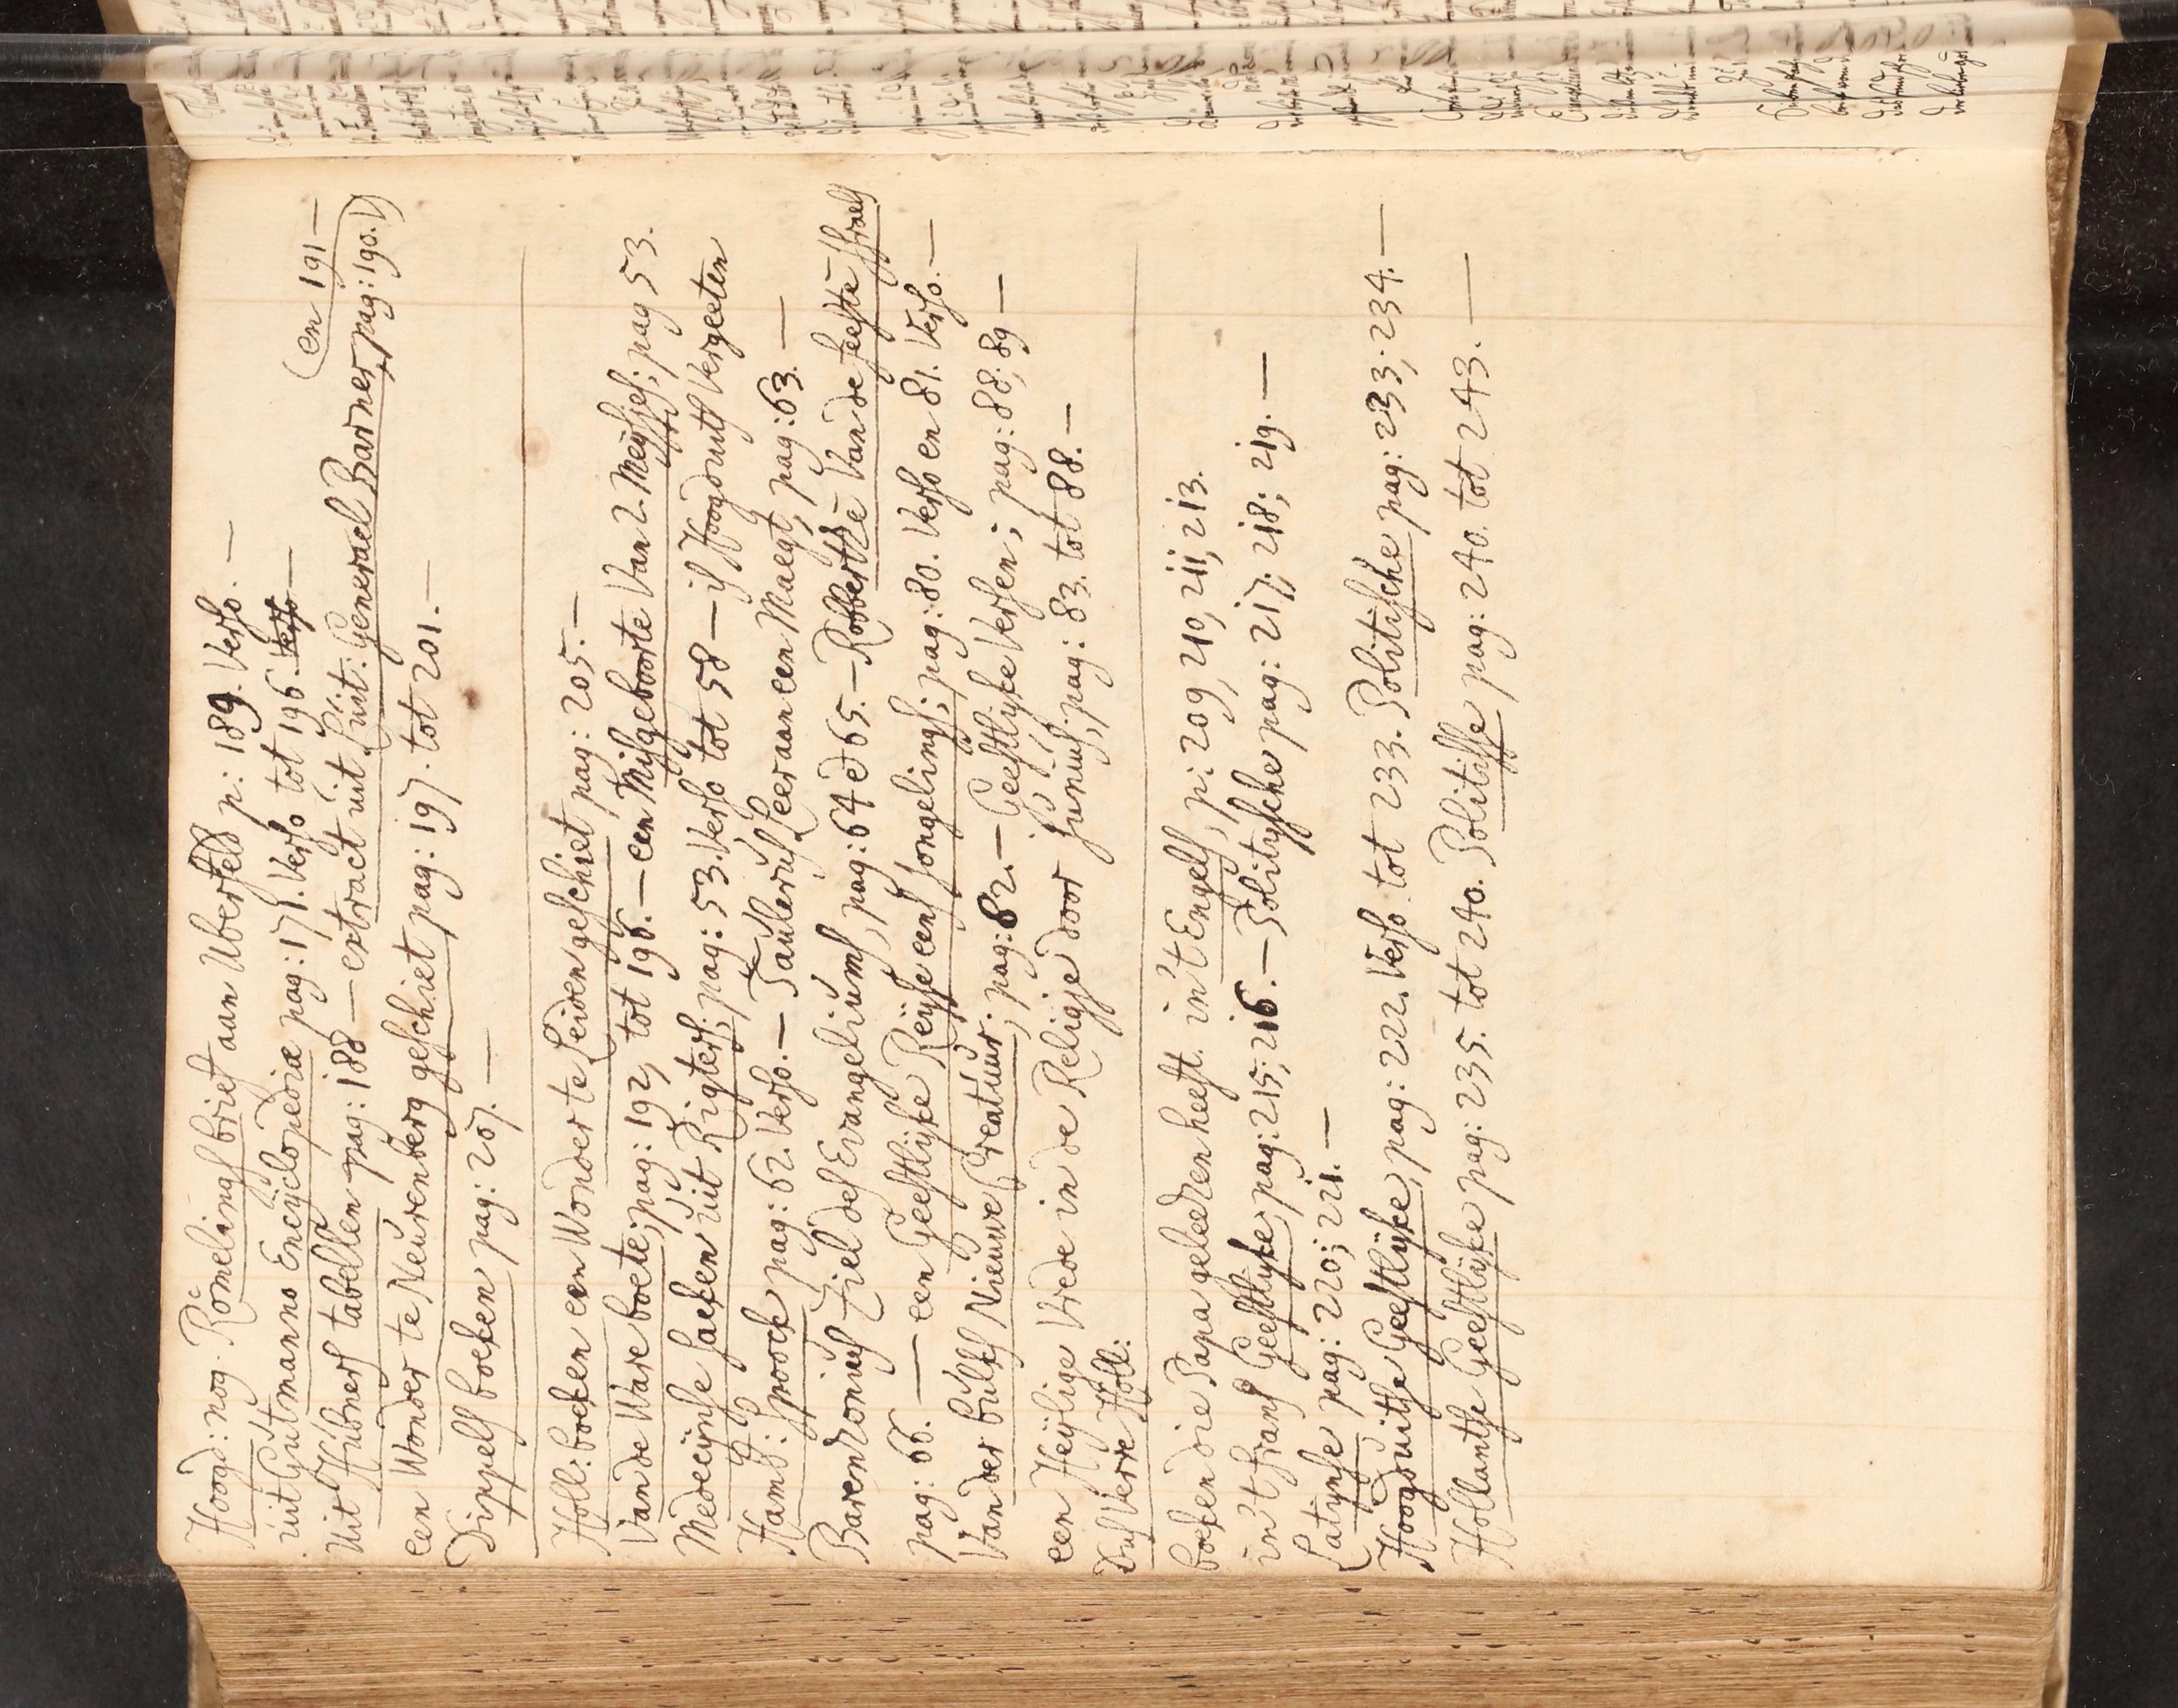 Hoogd: nog Römelings brief aan Uberfeld p: 189. Verso. —
uit Gutmanns Encyclopediæ pag: 171. Verso tot 196. Verso — (en 191 —
Uit Hübners tabellen pag: 188 — extract uit Luit: Generael Barner, pag: 190.)
een Wonder te Neurenberg geschiet pag: 197. tot 201. —
Dippels boeken pag: 207. —
Holl: boeken een Wonder te Leiden geschiet pag: 205. —
Van de Ware boete; pag: 192, tot 196. — een Misgeboorte Van 2. Meysjes; pag 53.
Medecijnse saeken uit Rigters; pag: 53. Verso tot 58 — is Hoogduits Vergeeten
Hamb: spoock pag: 62. Verso. — Taulerus Leer aan een Maegt, pag: 63. —
Barendzonius Ziel des Evangeliums, pag: 64 & 65. — Robbertze Van de feeste Israels
pag: 66. — een Geestlijke Reijse eens Jongelings; pag: 80. Verso en 81. Verso. —
Van der buiks Nieuwe Creatuur; pag: 82. — Geestlijke Versen; pag: 88; 89 —
een Heijlige Vrede in de Religje door Junius, pag: 83. tot 88. —
Dus Verre Holl:
boeken die Papa geleezen heeft. in't Engels, p: 209, 210, 211, 213.
in't frans Geestlijke, pag: 215; 216. — Politysche pag: 217, 218; 219. —
Latynse pag: 220; 221. —
Hoogduitse Geestlijke, pag: 222. Verso. tot 233. Politische pag: 233; 234. —
Hollantse Geestlijke pag: 235. tot 240. Politisse pag: 240. tot 243. —